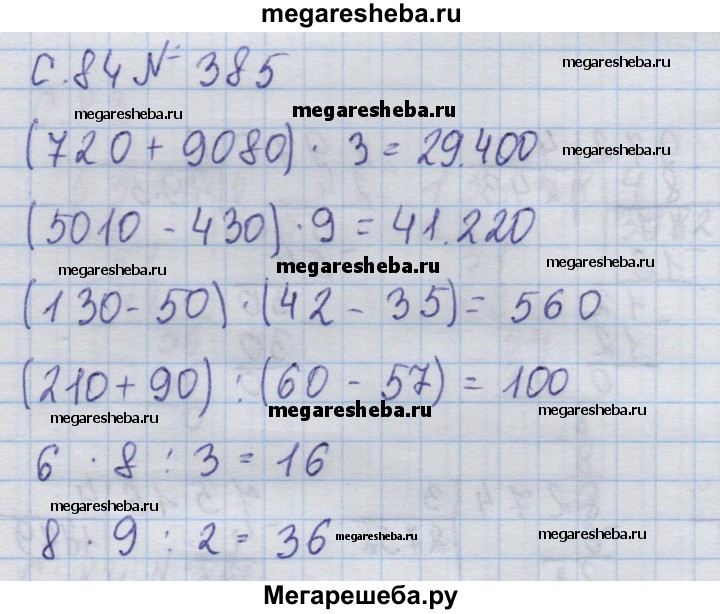 megaresheba.ru
С.84 № 385
megaresheba.ru
megaresheba.ru
megaresheba.ru
(720 + 9080) · 3 = 29.400
megaresheba.ru
(5010 - 430) · 9 = 41.220
megaresheba.ru
megaresheba.ru
megaresheba.ru
(130 - 50) · (42 - 35) = 560
(210 + 90) : (60 - 57) = 100
megaresheba.ru
megaresheba.ru
megaresheba.ru
6 · 8 : 3 = 16
megaresheba.ru
8 · 9 : 2 = 36
megaresheba.ru
megaresheba.ru
Мегарешеба.ру